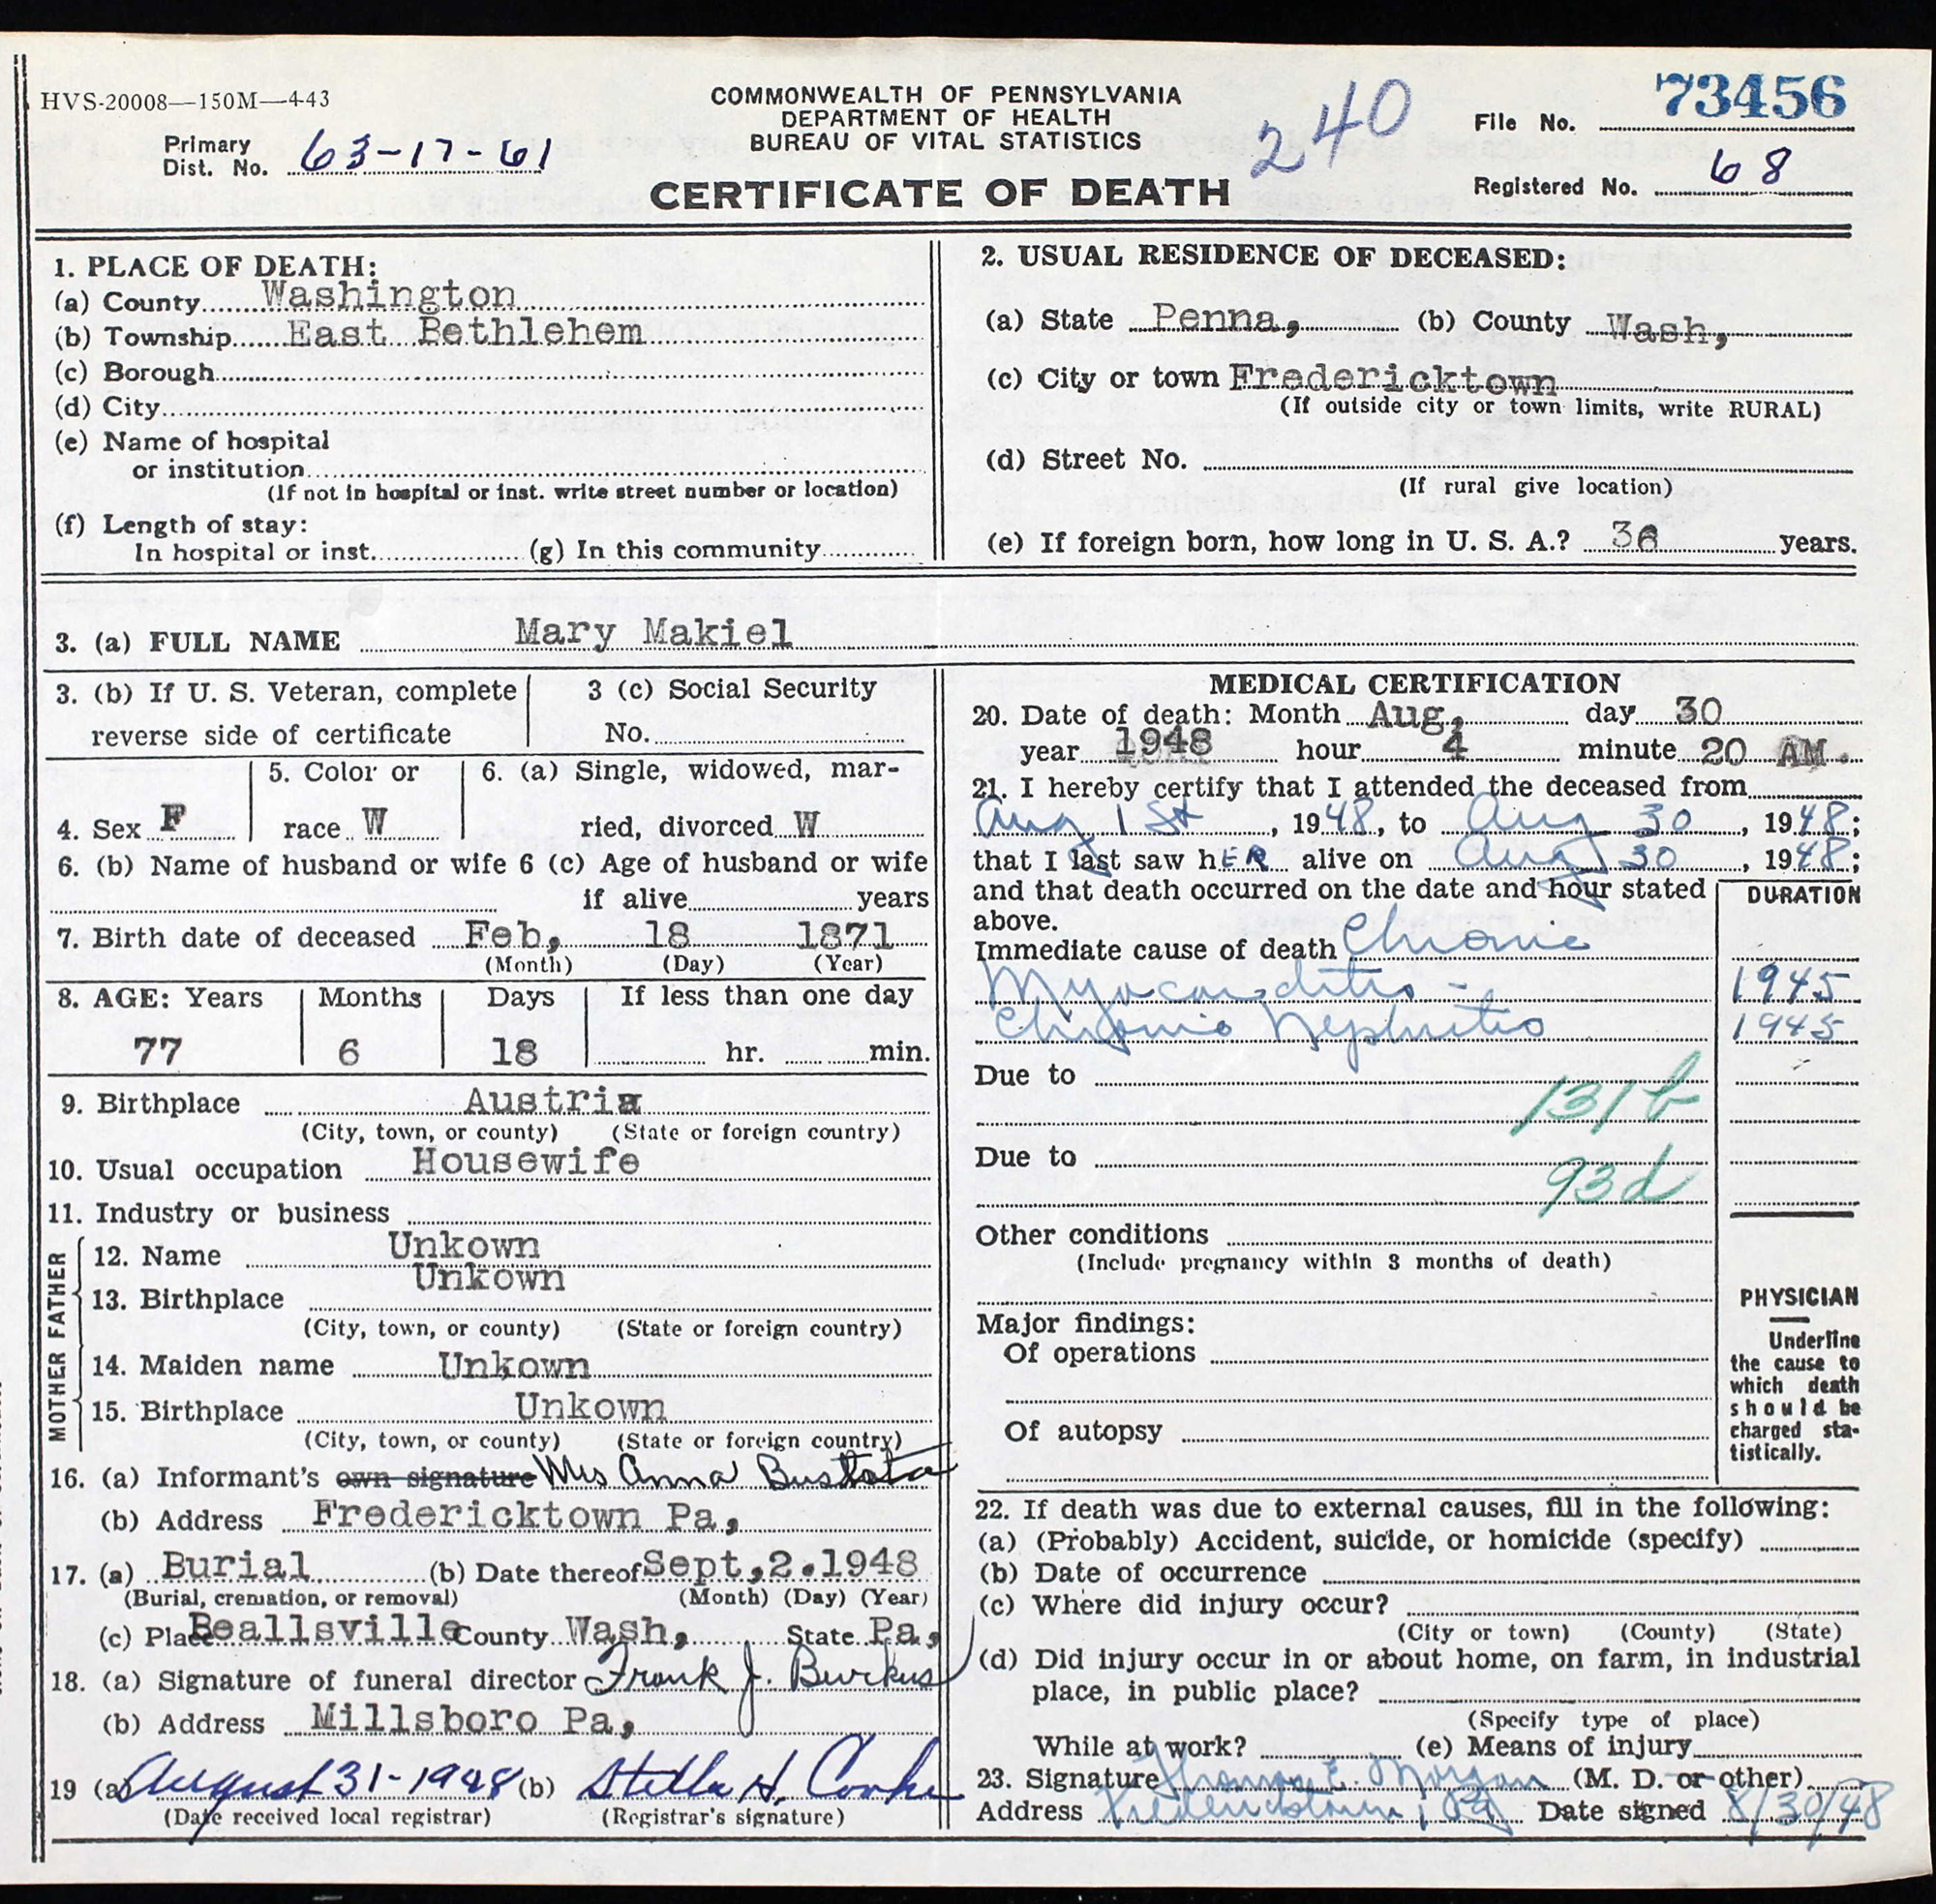 HVS-20008—150M—4-43
COMMONWEALTH OF PENNSYLVANIA
DEPARTMENT OF HEALTH
BUREAU OF VITAL STATISTICS
240
File No. 73456
Primary
Dist. No. 63-17-61
Registered No. 68
CERTIFICATE OF DEATH
1. PLACE OF DEATH:
(a) County Washington
(b) Township East Bethlehem
(c) Borough
(d) City
(e) Name of hospital
or institution
(If not in hospital or inst. write street number or location)
(f) Length of stay:
In hospital or inst. (g) In this community
2. USUAL RESIDENCE OF DECEASED:
(a) State Penna, (b) County Wash,
(c) City or town Fredericktown
(If outside city or town limits, write RURAL)
(d) Street No.
(If rural give location)
(e) If foreign born, how long in U. S. A.? years.
3. (a) FULL NAME Mary Makiel
3. (b) If U. S. Veteran, complete
reverse side of certificate
3 (c) Social Security
No.
4. Sex F
5. Color or
race W
6. (a) Single, widowed, mar-
ried, divorced W
6. (b) Name of husband or wife 6 (c) Age of husband or wife
if alive years
7. Birth date of deceased Feb, 18 1871
(Month) (Day) (Year)
8. AGE: Years Months Days If less than one day
77 6 18 hr. min.
9. Birthplace Austria
(City, town, or county) (State or foreign country)
10. Usual occupation Housewife
11. Industry or business
MOTHER FATHER
12. Name Unkown
13. Birthplace Unkown
(City, town, or county) (State or foreign country)
14. Maiden name Unkown
15. Birthplace Unkown
(City, town, or county) (State or foreign country)
16. (a) Informant's own signature Mrs Anna
(b) Address Fredericktown Pa,
17. (a) Burial (b) Date thereof Sept,2.1948
(Burial, cremation, or removal) (Month) (Day) (Year)
(c) Place Beallsville County Wash, State Pa,
18. (a) Signature of funeral director Frank J. Burkus
(b) Address Millsboro Pa,
19 (a) August 31-1948 (b) Stella H. Cooke
(Date received local registrar) (Registrar's signature)
MEDICAL CERTIFICATION
20. Date of death: Month Aug, day 30
year 1948 hour 4 minute 20 AM.
21. I hereby certify that I attended the deceased from
Aug 1st, 1948, to Aug 30, 1948;
that I last saw hER alive on Aug 30, 1948;
and that death occurred on the date and hour stated
above.
DURATION
Immediate cause of death Chronic
Myocarditis - 1945
Chronic Nephritis 1945
Due to
131b
Due to
93d
Other conditions
(Include pregnancy within 3 months of death)
Major findings:
Of operations
Of autopsy
PHYSICIAN
Underline
the cause to
which death
should be
charged sta-
tistically.
22. If death was due to external causes, fill in the following:
(a) (Probably) Accident, suicide, or homicide (specify)
(b) Date of occurrence
(c) Where did injury occur?
(City or town) (County) (State)
(d) Did injury occur in or about home, on farm, in industrial
place, in public place?
(Specify type of place)
While at work? (e) Means of injury
23. Signature Thomas E. Morgan (M. D. or other)
Address Fredericktown, Pa Date signed 8/30/48